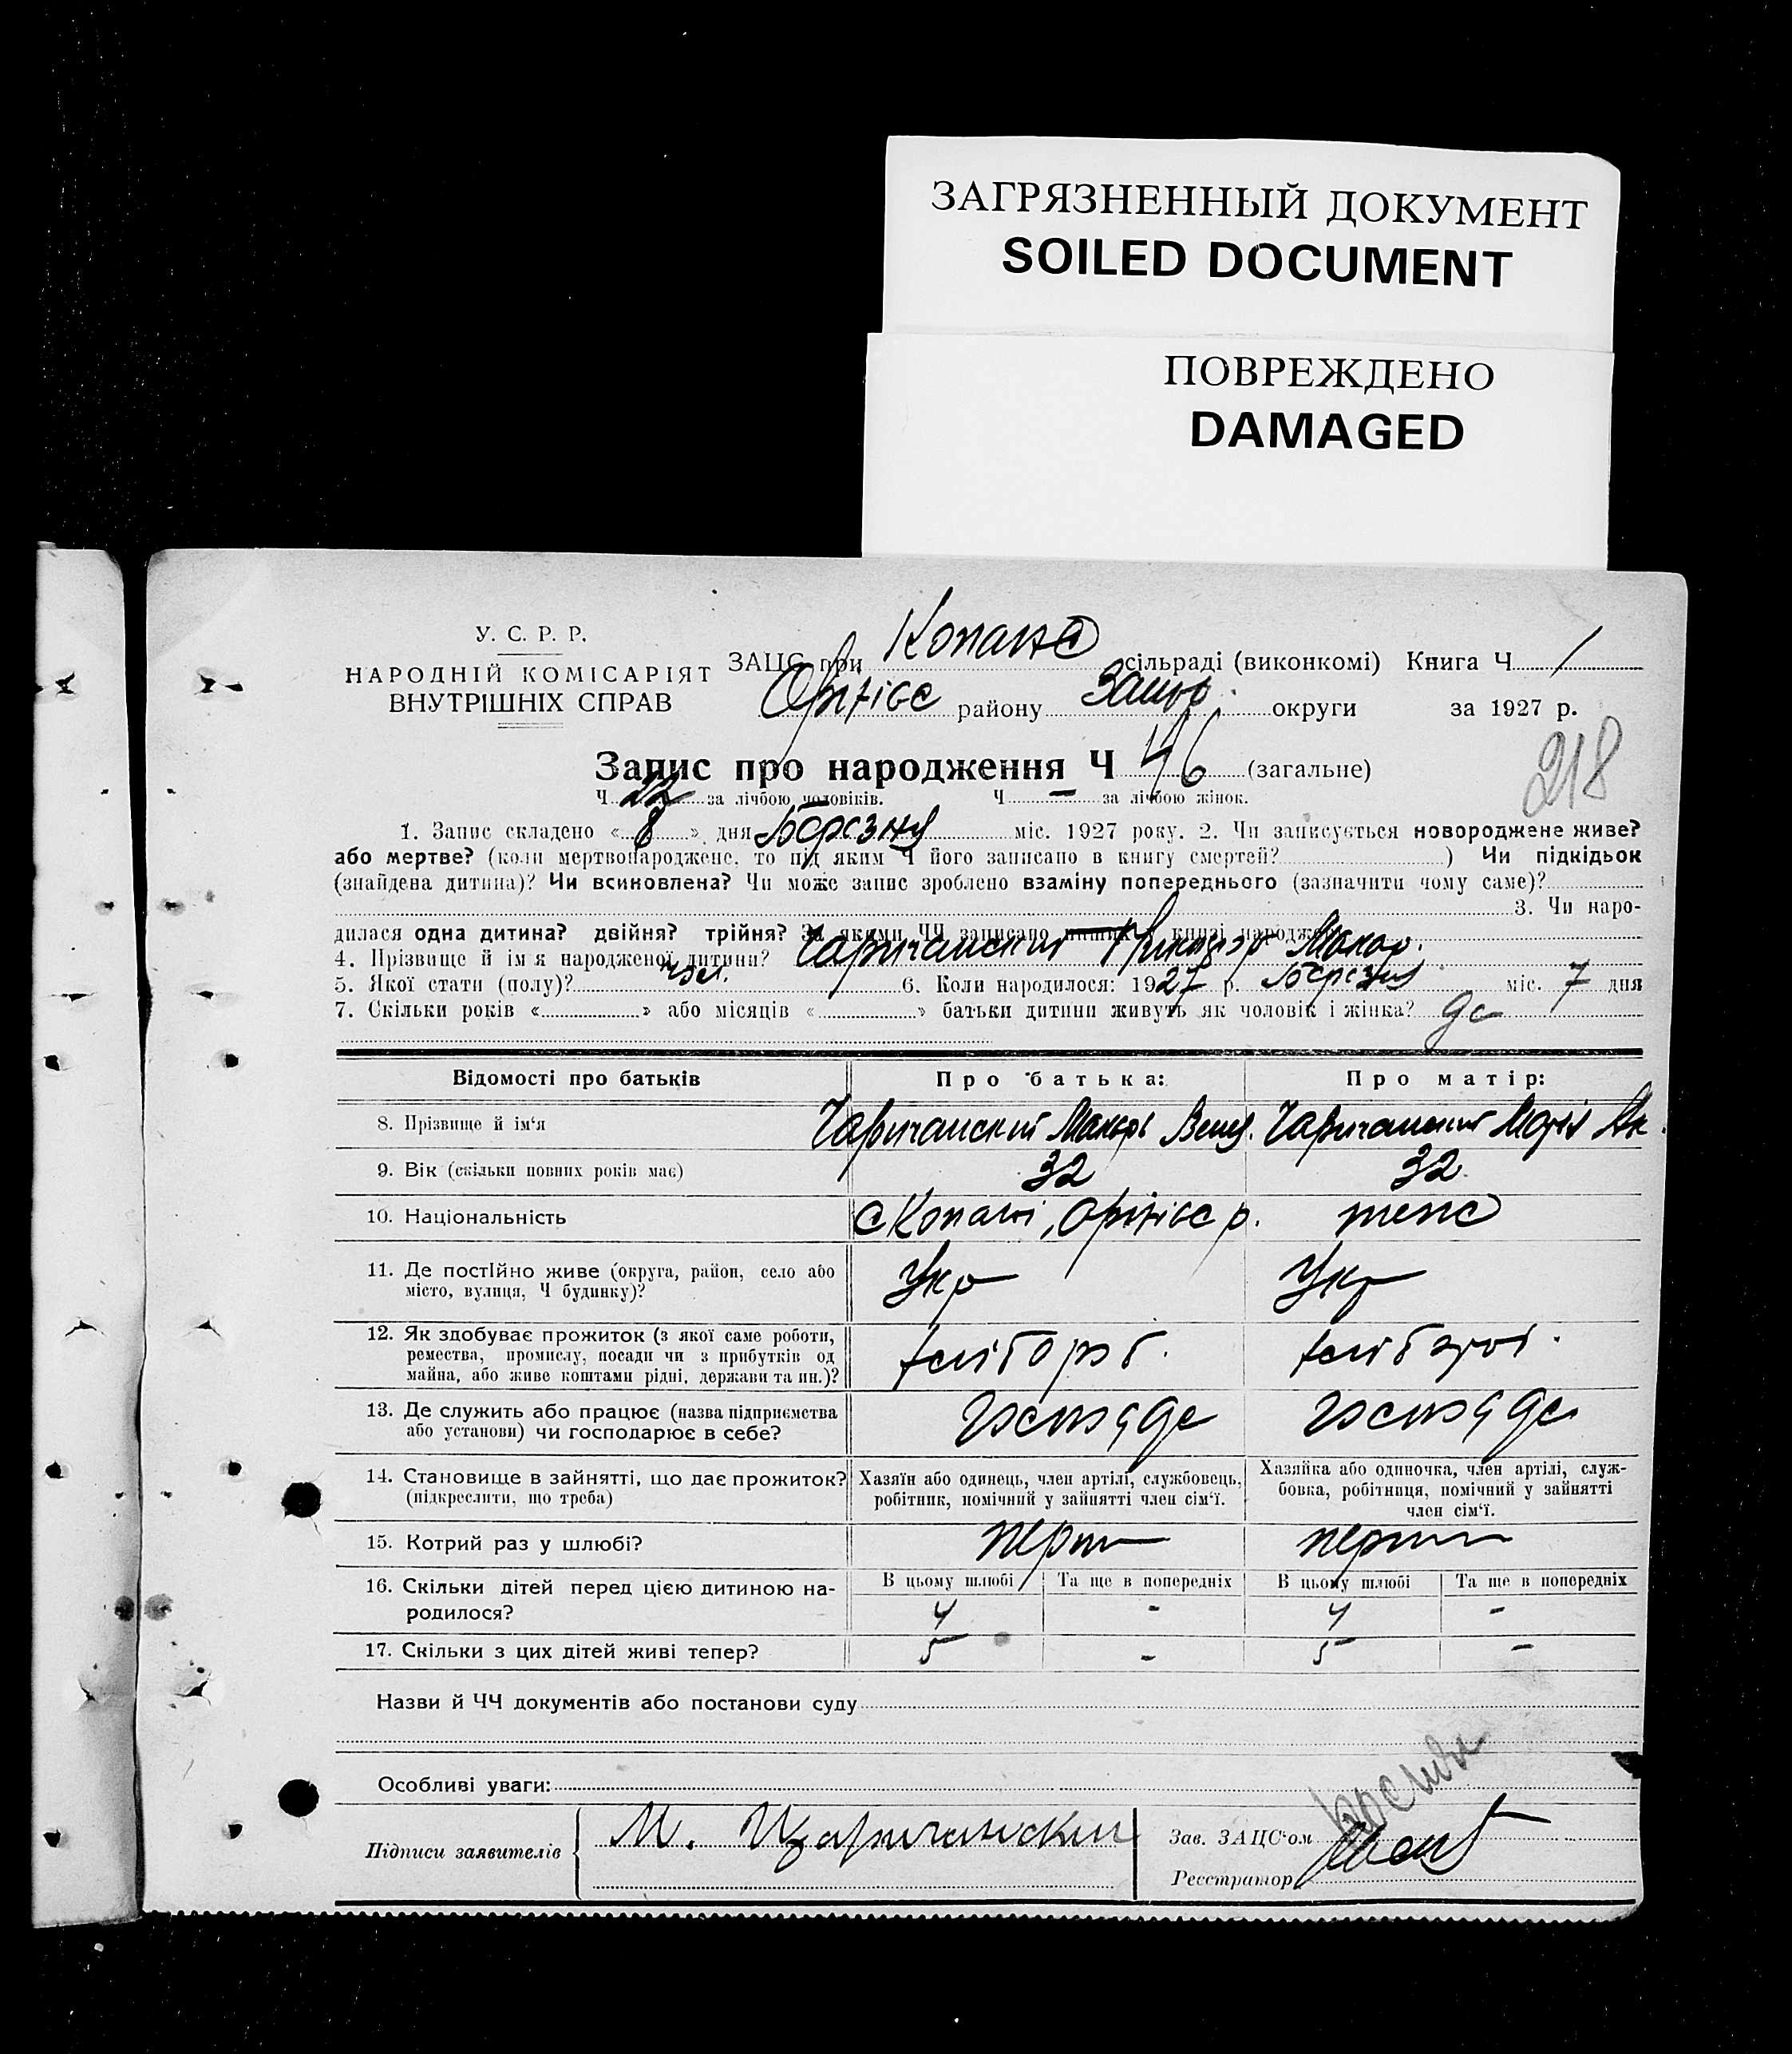 ЗАГРЯЗНЕННЫЙ ДОКУМЕНТ
SOILED DOCUMENT
ПОВРЕЖДЕНО
DAMAGED
У. С. Р. Р.
НАРОДНІЙ КОМІСАРІЯТ
ВНУТРІШНІХ СПРАВ
ЗАЦС при Копанс сільраді (виконкомі) Книга Ч 1
Оріхівс району Запор. округи за 1927 р.
218
Запис про народження Ч 46 (загальне)
Ч за лічбою чоловіків. Ч — за лічбою жінок.
1. Запис складено « 8 » дня Березня міс. 1927 року. 2. Чи записується новороджене живе?
або мертве? (коли мертвонароджене, то під яким Ч його записано в книгу смертей? ) Чи підкідьок
(знайдена дитина)? Чи всиновлена? Чи може запис зроблено взаміну попереднього (зазначити чому саме)?
3. Чи наро-
дилася одна дитина? двійня? трійня? За якими ЧЧ записано инших у книзі народж.
4. Прізвище й ім'я народженої дитини? Чаричанский Макар.
5. Якої стати (полу)? чол. 6. Коли народилося: 1927 р. Березня міс. 7 дня
7. Скільки років « » або місяців « » батьки дитини живуть як чоловік і жінка? 9
Відомості про батьків
Про батька:
Про матір:
8. Прізвище й ім'я
Чаричанский Макарь
Чаричанский Марія Як.
9. Вік (скільки повних років має)
32
32
10. Національність
с Копані, Оріхівс р.
теже
11. Де постійно живе (округа, район, село або
місто, вулиця, Ч будинку)?
Укр
Укр
12. Як здобуває прожиток (з якої саме роботи,
ремества, промислу, посади чи з прибутків од
майна, або живе коштами рідні, держави та ин.)?
хлібороб.
хлібороб.
13. Де служить або працює (назва підприємства
або установи) чи господарює в себе?
14. Становище в зайнятті, що дає прожиток?
(підкреслити, що треба)
Хазяїн або одинець, член артілі, службовець,
робітник, помічний у зайнятті член сім'ї.
Хазяйка або одиночка, член артілі, служ-
бовка, робітниця, помічний у зайнятті
член сім'ї.
15. Котрий раз у шлюбі?
перш
перш
16. Скільки дітей перед цією дитиною на-
родилося?
В цьому шлюбі
Та ще в попередніх
В цьому шлюбі
Та ще в попередніх
4
-
4
-
17. Скільки з цих дітей живі тепер?
5
-
5
-
Назви й ЧЧ документів або постанови суду
Особливі уваги:
Підписи заявителів
М. Чаричанский
Зав. ЗАЦС'ом
Реєстратор